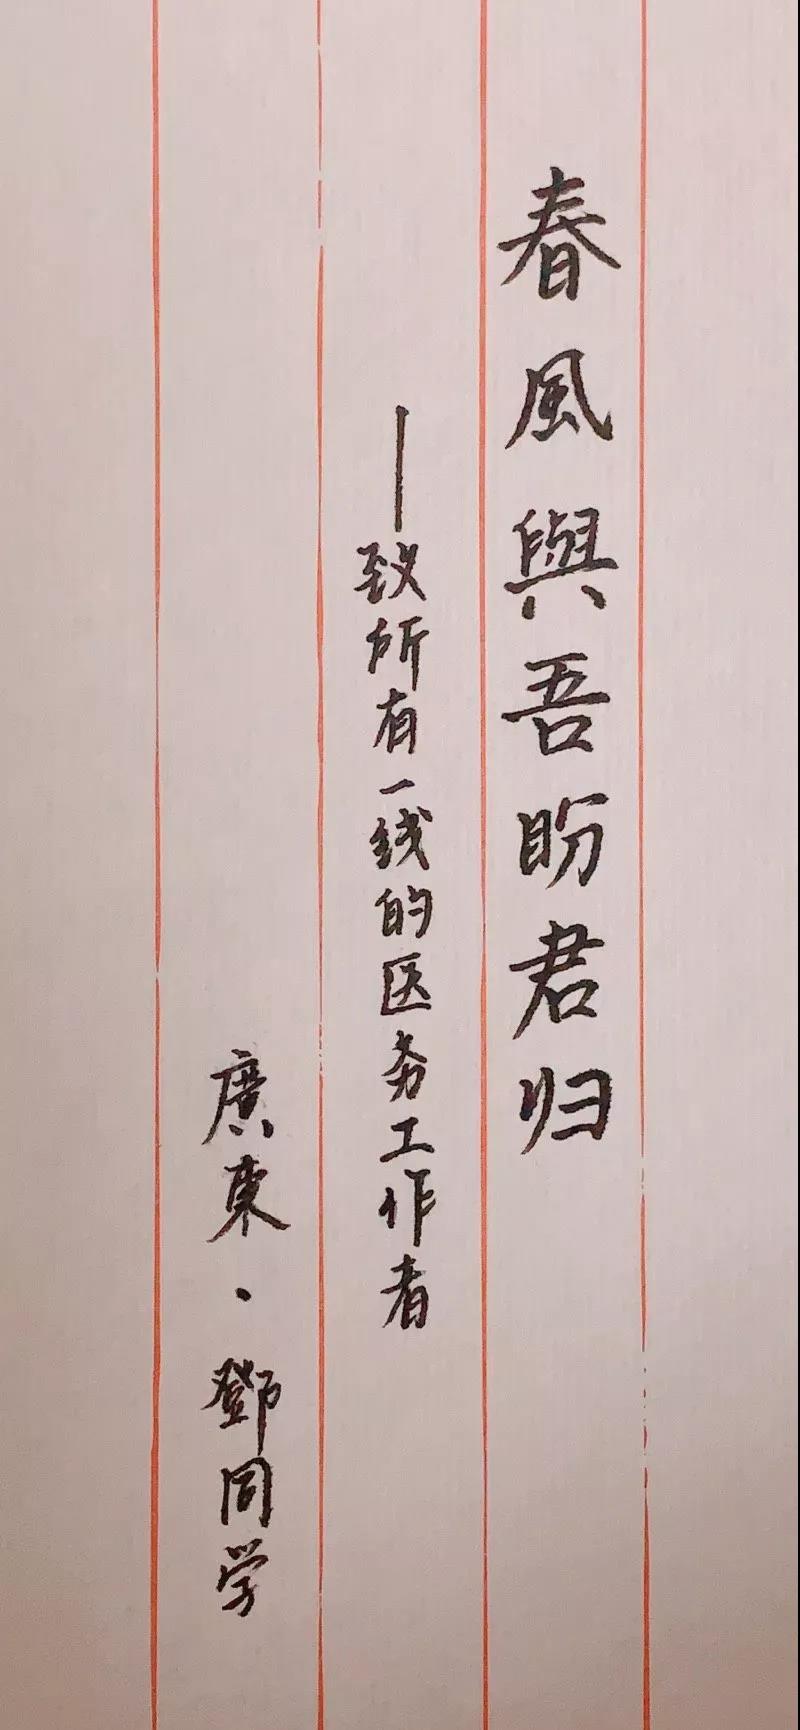 春風與吾盼君归
——致所有一线的医务工作者
廣東·鄧同学